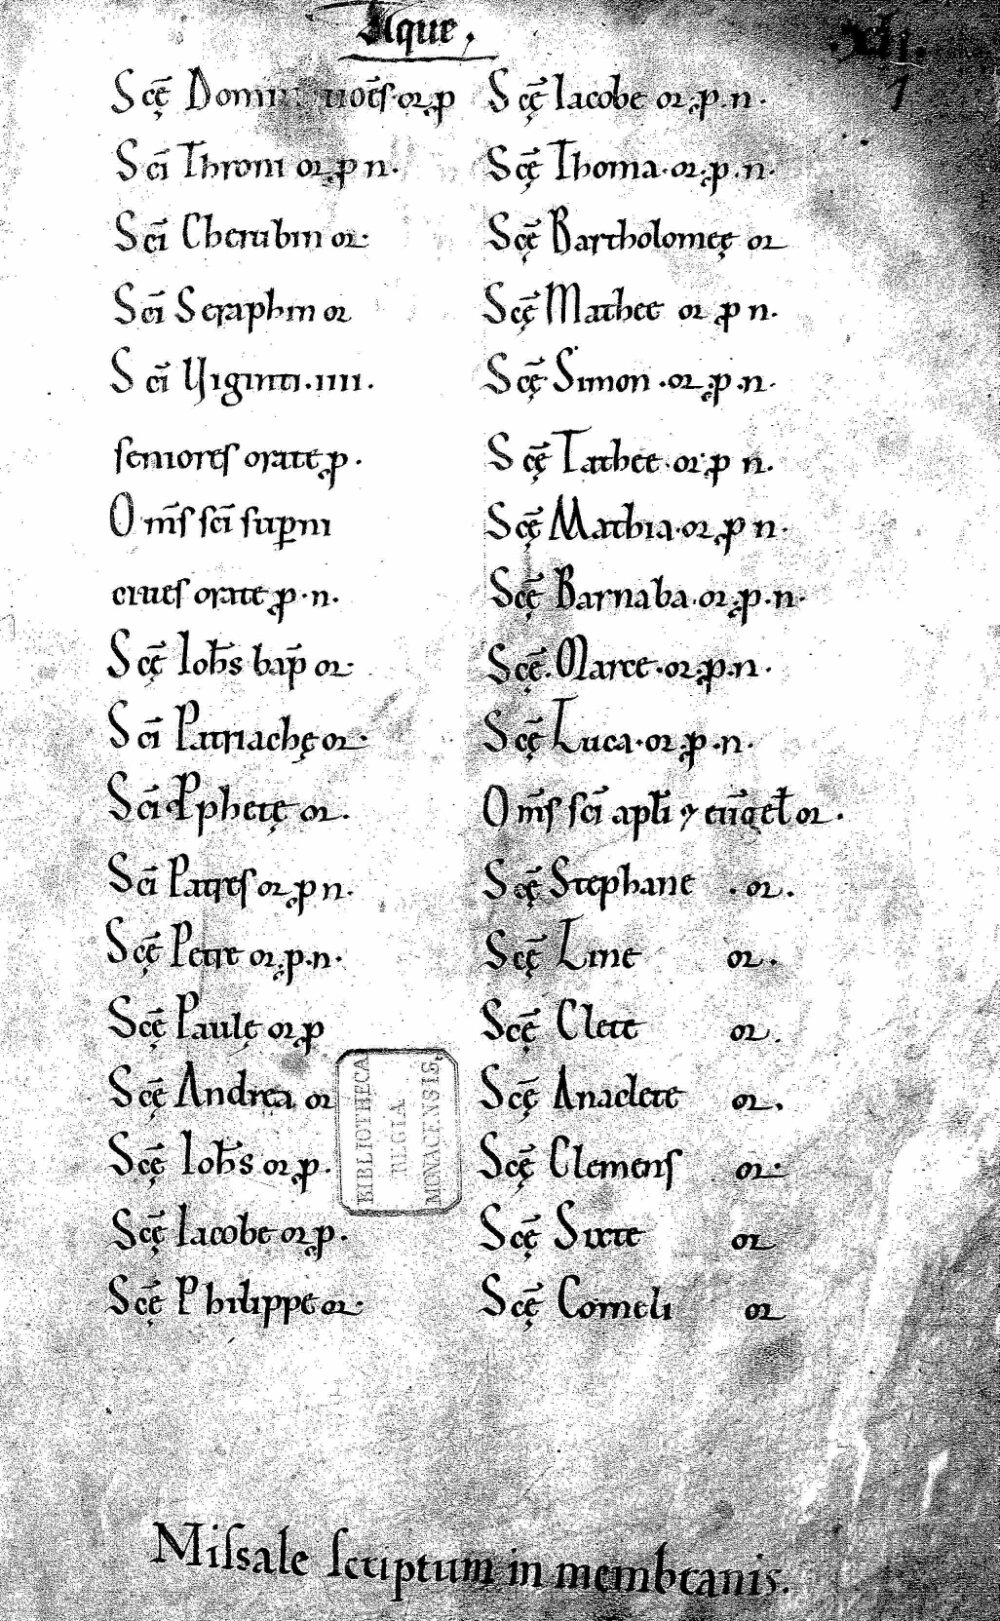 Aque.
xlij.
1
Scē Domin uōēs·or ꝓ
Scī Throni or ꝓ n.
Scī Cherubin or·
Scī Seraphin or
Scī Viginti.iiii.
seniores orate ꝓ.
Om̄s scī suꝑni
ciues orate ꝓ·n.
Scę̄ Ioh̄s bap̄ or·
Scī Patriachę or·
Scī Ꝓphetę or.
Scī Patres or ꝓ n.
Scę̄ Petre or.ꝓ.n.
Scę̄ Paulę or ꝓ
Scę̄ Andrea or
Scę̄ Ioh̄s or ꝓ.
Scę̄ Iacobe or ꝓ.
Scę̄ Philippe or·
Scę̄ Iacobe or.ꝓ.n.
Scę̄ Thoma·or.ꝓ.n.
Scę̄ Bartholomeę or
Scę̄ Mathee or ꝓ n.
Scę̄ Simon·or.ꝓ.n.
Scę̄ Tathee·or ꝓ n.
Scę̄ Mathia·or ꝓ n.
Scę̄ Barnaba.or.ꝓ.n.
Scę̄. Marce·or.ꝓ.n.
Scę̄ Luca·or.ꝓ.n.
Om̄s scī apłi ⁊ eūgeł or.
Scę̄ Stephane .or.
Scę̄ Line or.
Scę̄ Clete or.
Scę̄ Anaclete or.
Scę̄ Clemens or·
Scę̄ Sixte or
Scę̄ Corneli or
BIBLIOTHECA
REGIA
MONACENSIS.
Miſsale ſcriptum in membranis.